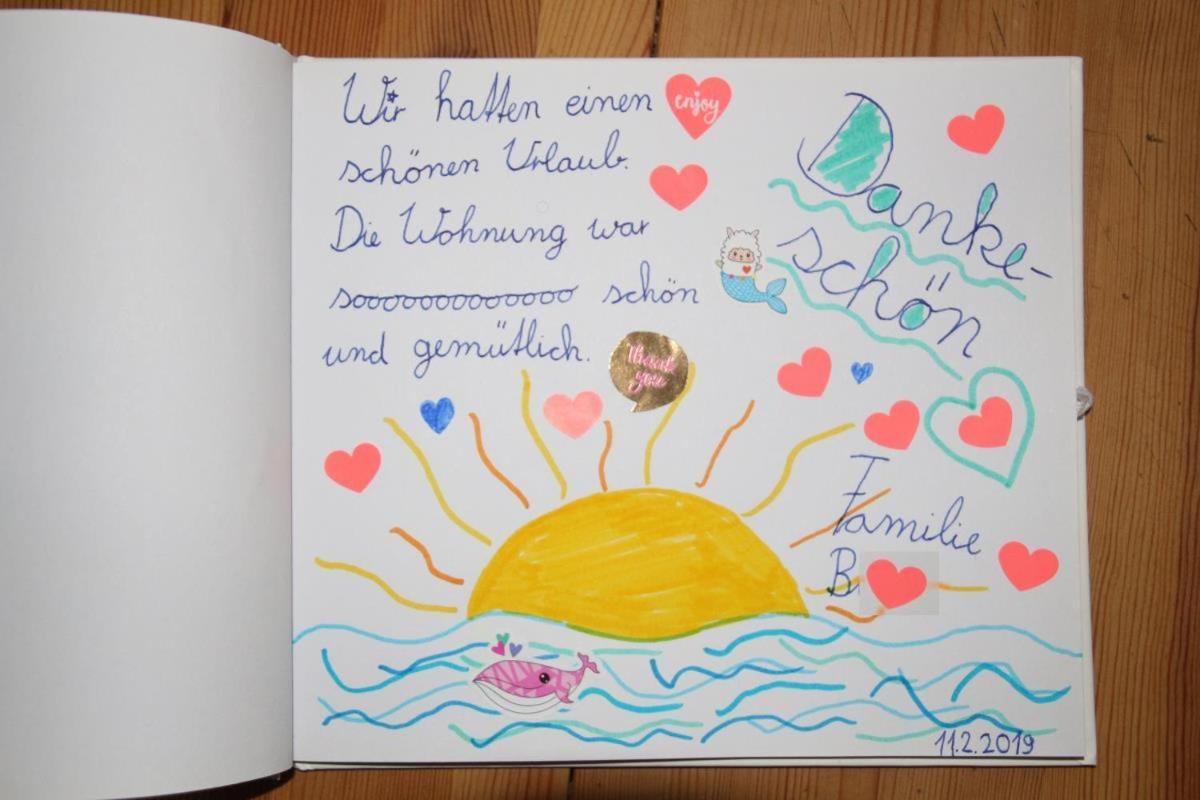 Wir hatten einen
enjoy
schönen Urlaub.
Die Wohnung war
sooooooooooooo schön
und gemütlich.
thank
you
Danke-
schön
Familie
B
11.2.2019